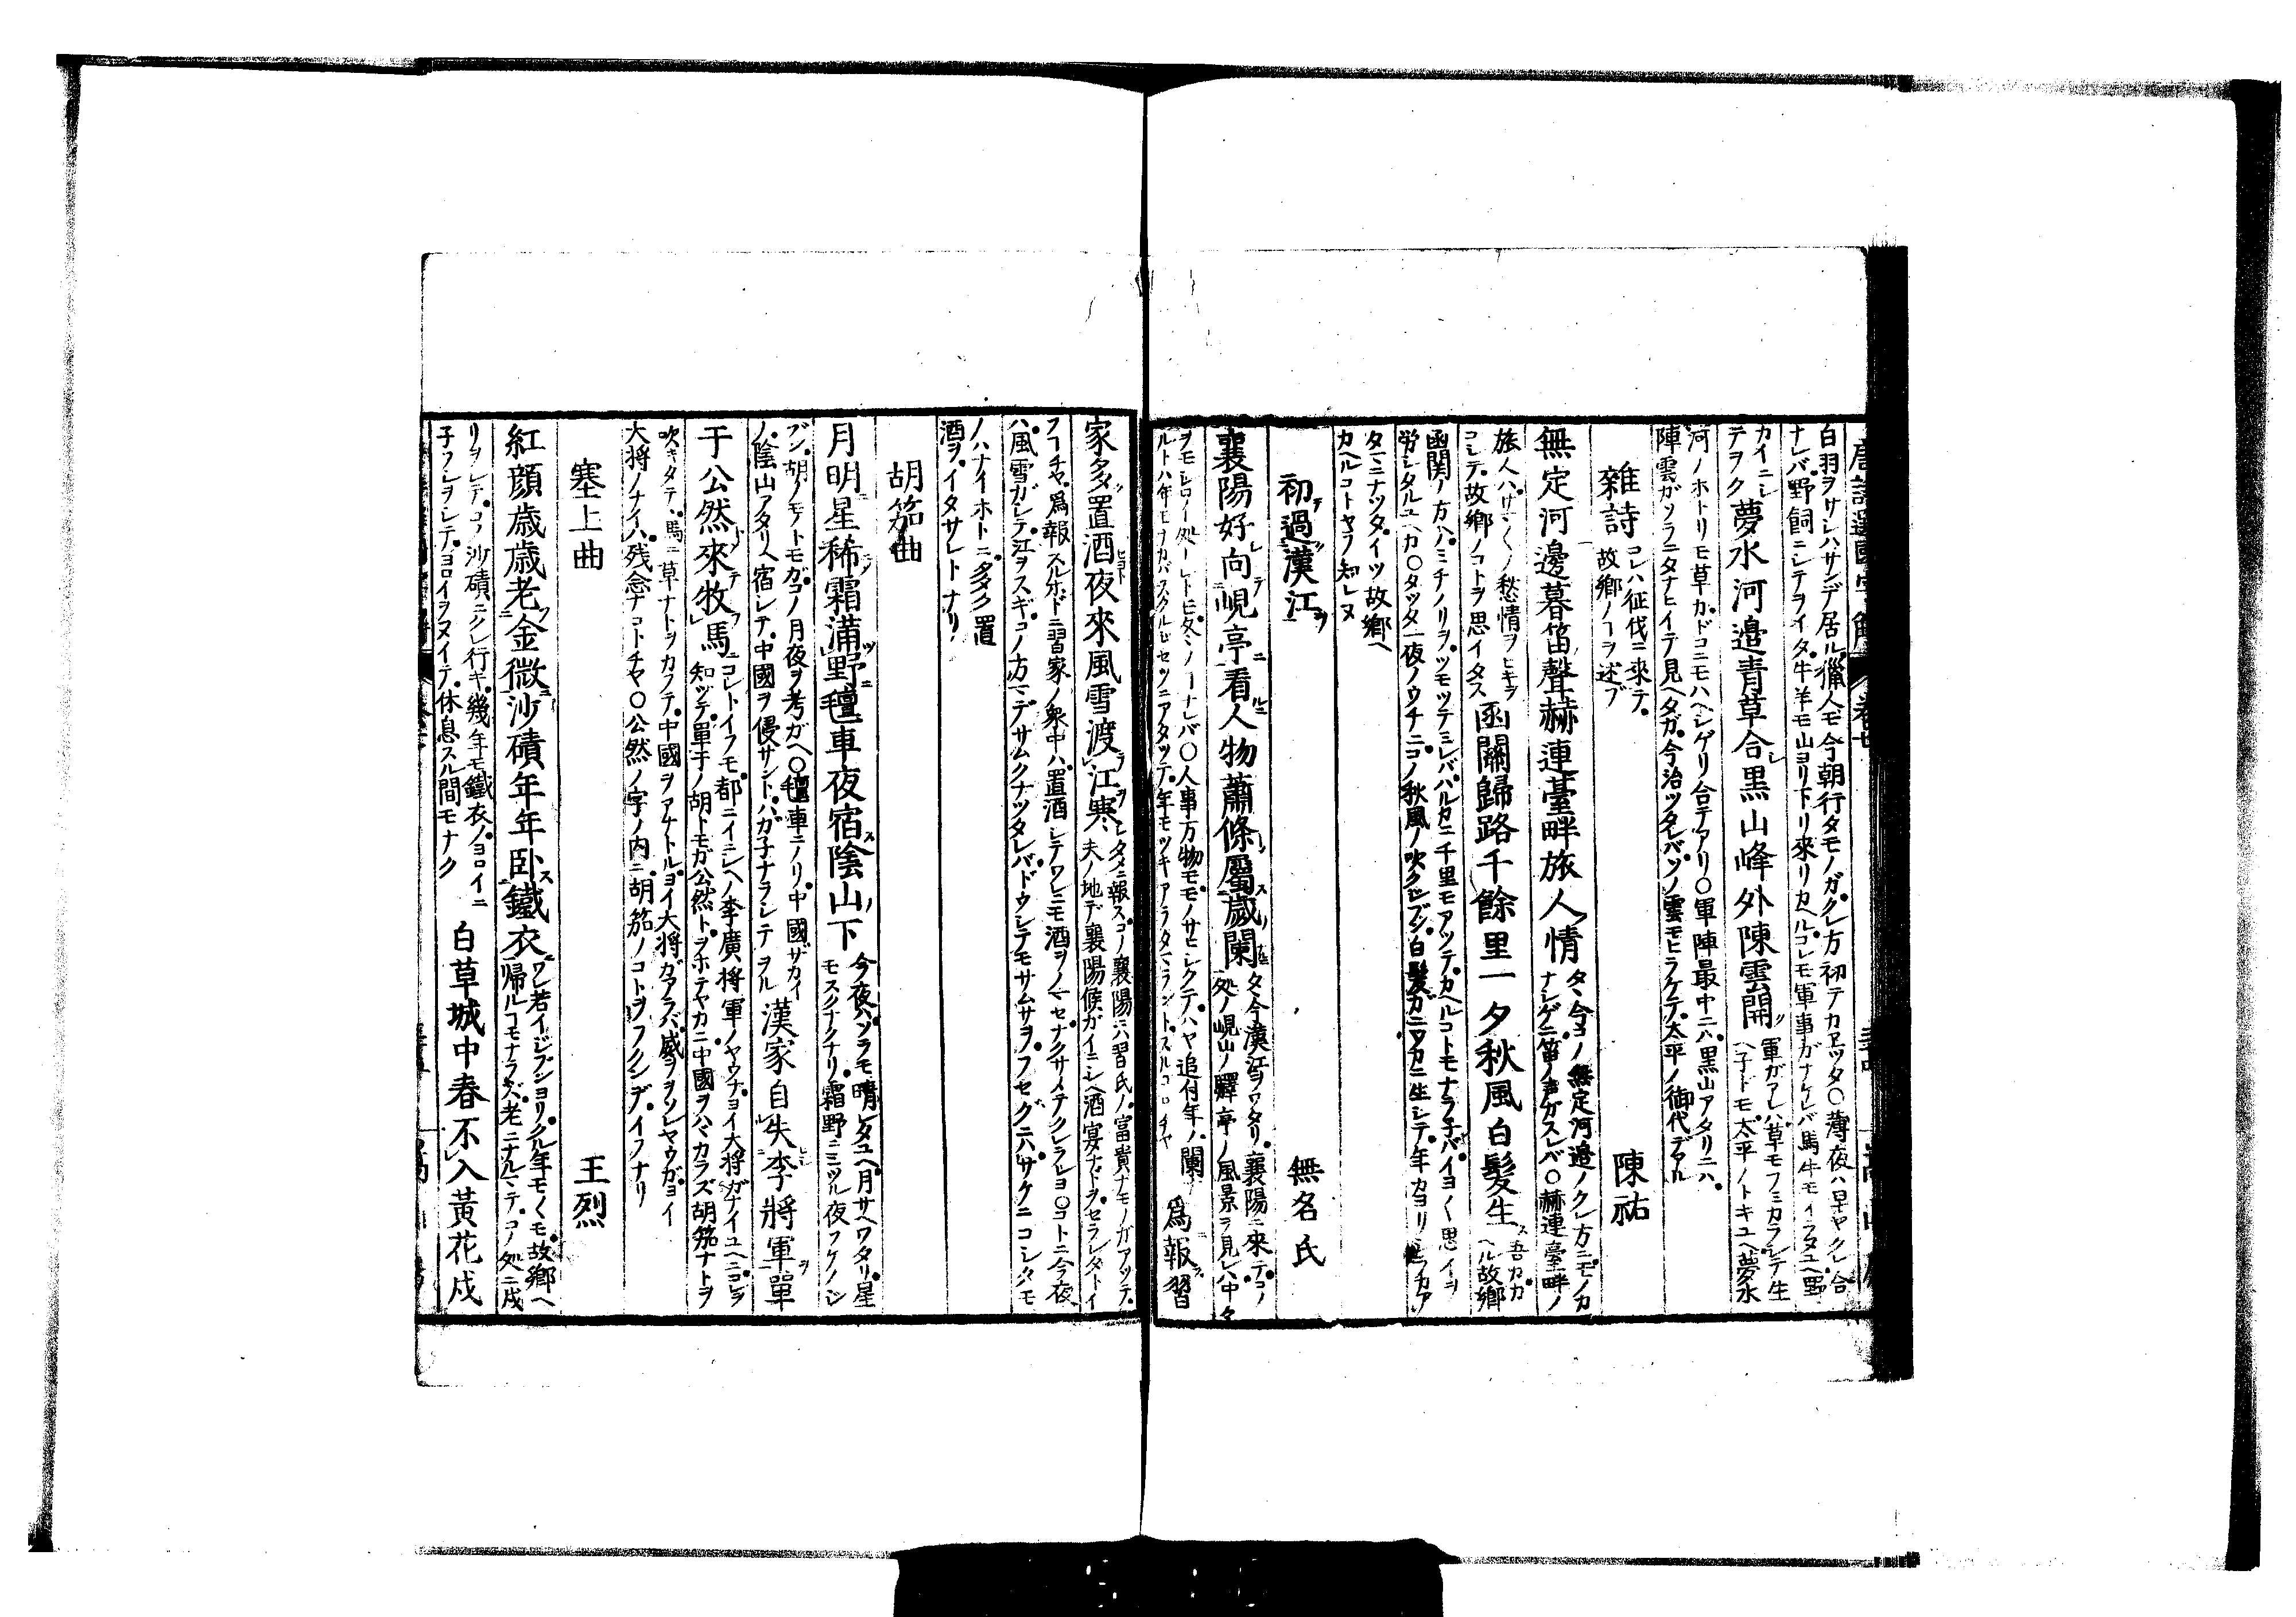 白羽ヲサシハサンデ居ル獵人モ今朝行タモノガクレ方初テカエツタ〇薄夜ハ早ヤクレ合
ナレバ野飼ニシテヲイタ牛羊モ山ヨリ下リ來リカヘルコレモ軍事ガナケレバ馬牛モイラヌユヘ野
カイニシテヲク
夢水河邉青草合黒山峰外陳雲開
軍ガアレハ草モフミカラシテ生
ヘ子ドモ太平ノトキユヘ夢水
河ノホトリモ草カドコニモハヘシゲリ合テアリ〇軍陣最中ニハ黒山アタリニハ
陣雲ガソラニタナヒイテ見ヘタガ今治ツタレバソノ雲モヒラケテ太平ノ御代デアル
雜詩
コレハ征伐ニ來テ
故郷ノコヲ述ブ
陳祐
無定河邊暮笛聲赫連臺畔旅人情
タヾ今コノ無定河邉ノクレ方ニモノカ
ナシゲニ笛ノ声ガスレバ〇赫連臺畔ノ
旅人ハサマ〳〵ノ愁情ヲヒキヲ
コシテ故郷ノコトヲ思イタス
函關歸路千餘里一夕秋風白髪生
吾カカ
ヘル故郷
函関ノ方ハミチノリヲツモツテミレバハルカニ千里モアツテカヘルコトモナラ子バイヨ〳〵思イヲ
労シタルユヘカ〇タツタ一夜ノウチニコノ秋風ノ吹クジブン白髪ガニワカニ生シテ年カヨリ
タマニナツタイツ故郷ヘ
カヘルコトヤラ知レヌ
初過漢江
無名氏
襄陽好向峴亭看人物蕭條屬歳闌
タヾ今漢江ヲワタリ襄陽ニ來テコノ
処ノ峴山ノ驛亭ノ風景ヲ見レハ中々
人事万物モモノサヒシクテハヤ追付年ノ闌
爲報習
家多置酒夜來風雪渡江寒
夫ノ地デ襄陽候ガイニシヘ酒宴ナドヲセラレタトイ
フコチヤ爲報スルホドニ習家ノ衆中ハ置酒シテワレニモ酒ヲノマセナクサメテクラレヨ〇コトニ今夜
ハ風雪ガシテ江ヲスギコノ方マデサムクナツタレバドウシテモサムサヲフセグニハサケニコシタモ
ノハナイホトニ多タク置
酒ヲイタサレトナリ
胡笳曲
月明星稀霜滿野氊車夜宿陰山下
今夜ハソラモ晴レタユヘ月サヘワタリ星
モスクナクナリ霜野ニミツル夜フケノジ
ブン胡ノモノトモガコノ月夜ヲ考ガヘ〇氊車ニノリ中國ザカイ
ノ陰山アタリヘ宿シテ中國ヲ侵サントハガ子ナラシテヲル
漢家自失李將軍單
于公然來牧馬
コレトイフモ都ニイニシヘノ李廣将軍ノヤウナヨイ大将ガナイユヘニコレヲ
知ツテ單于ノ胡トモガ公然トヲホテヤカニ中國ヲハヾカラズ胡笳ナトヲ
吹キタテ馬ニ草ナトヲカフテ中國ヲアナトルヨイ大将ガアラバ威ヲヲソレヤウガヨイ
大将ノナイハ残念ナコトチヤ〇公然ノ字ノ内ニ胡笳ノコトヲフクンデイフナリ
塞上曲
王烈
紅顔歳歳老金微沙磧年年卧鐵衣
ワレ若イジブンヨリクル年モ〳〵モ故郷ヘ
帰ルコモナラズ老ニナルマテコノ処ニ戍
リヲシテコノ沙磧ニクレ行キ幾年モ鐵衣ノヨロイニ
子フシヲシテヨロイヲヌイテ休息スル間モナク
白草城中春不入黃花戍